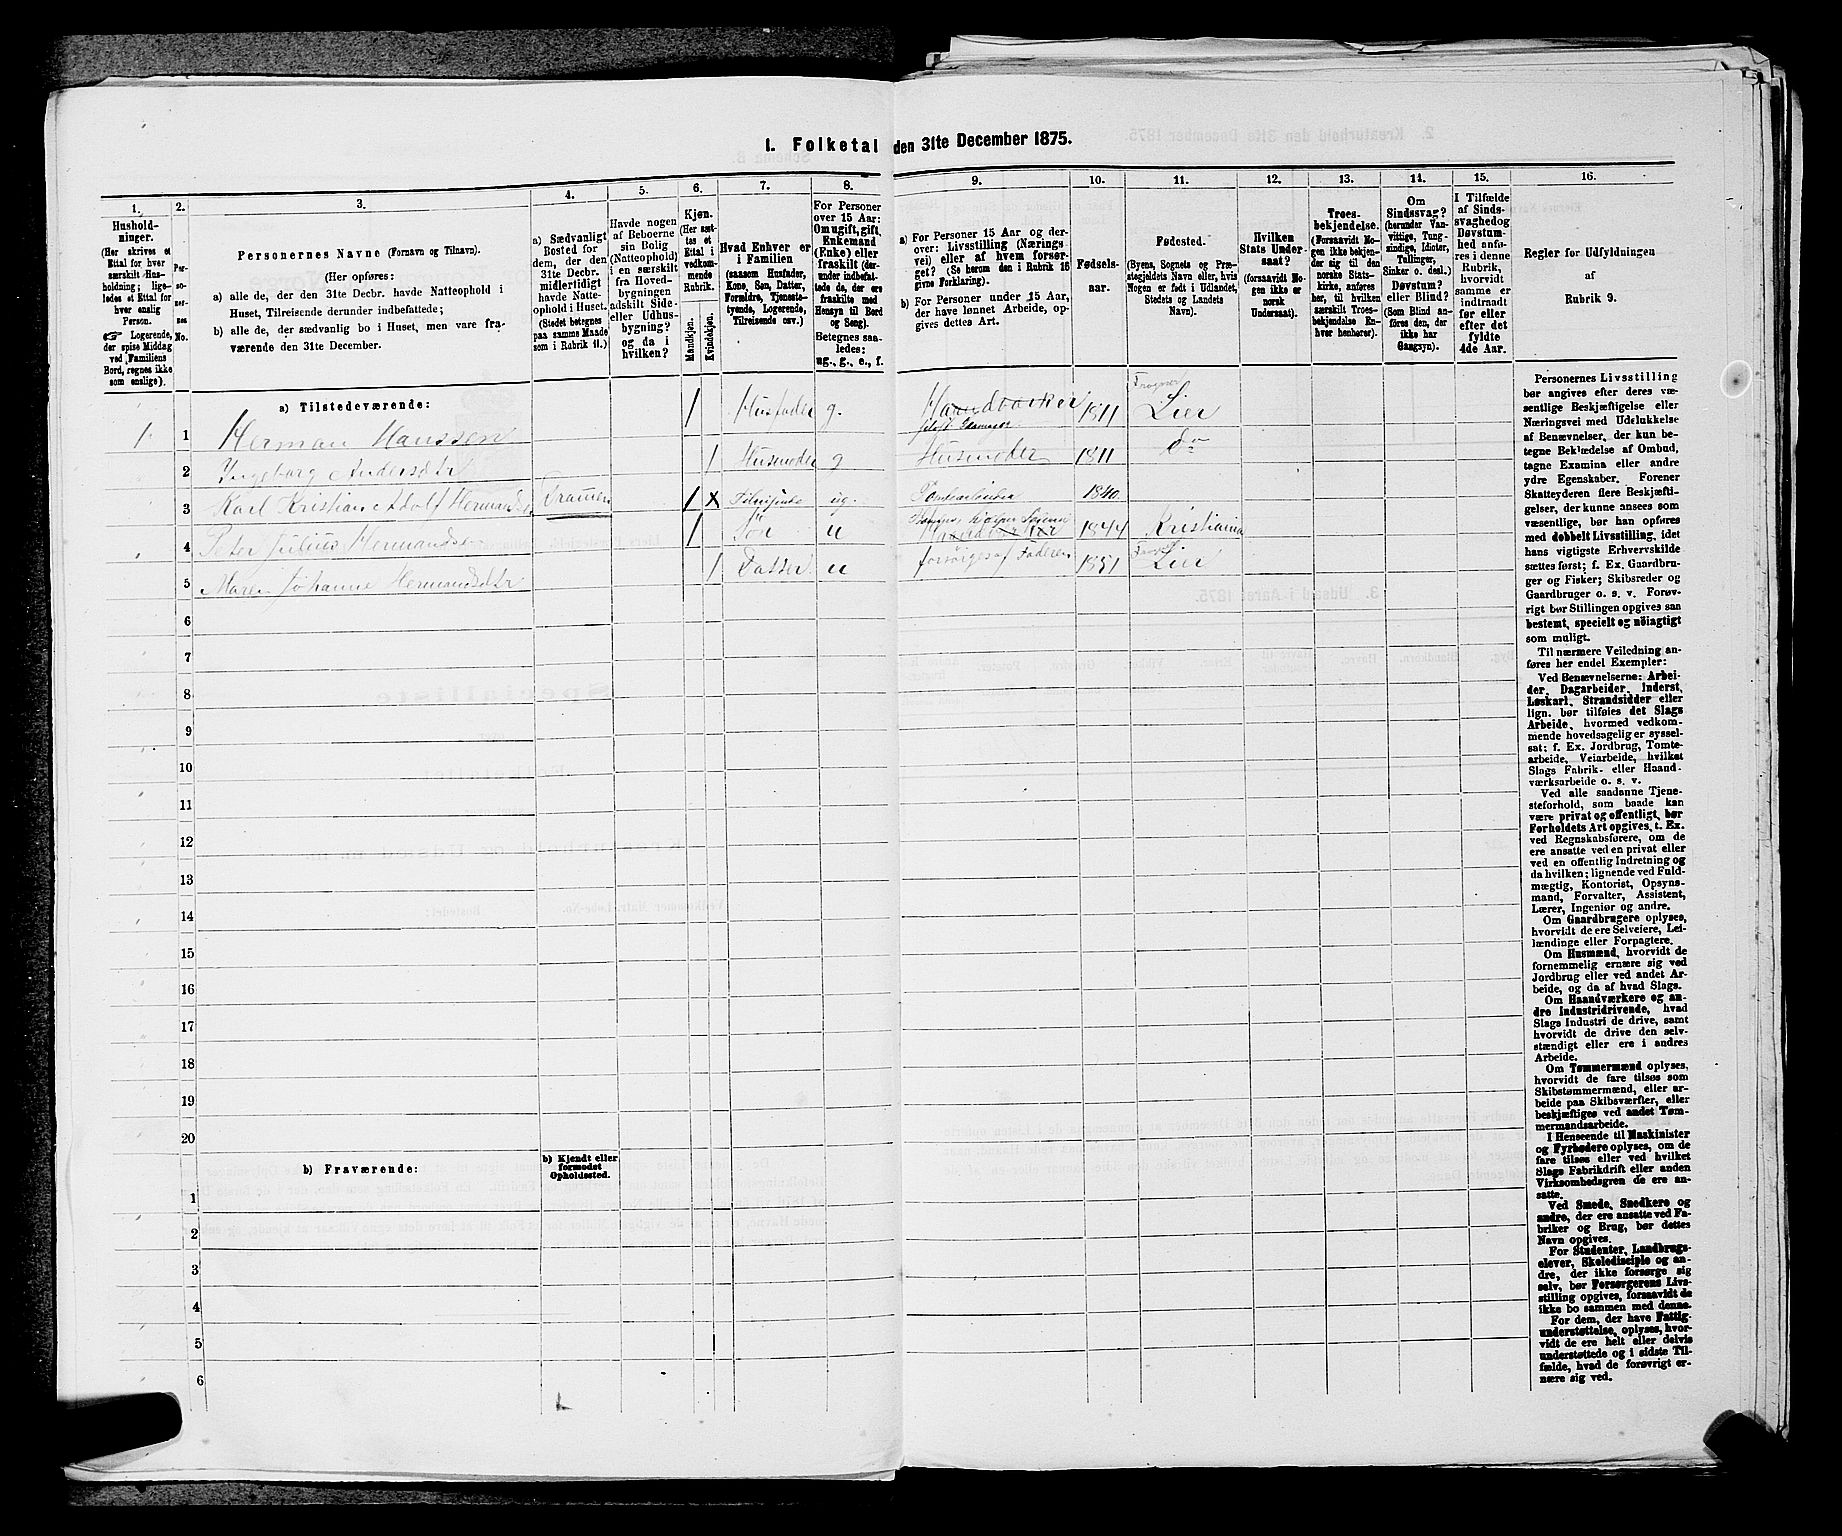 1. Folketal den 31te December 1875.
1.
Hushold-
ninger.
(Her skrives et
Ettal for hver
særskilt Hus-
holdning; lige-
ledes et Ettal for
hver enslig
Person.
☞ Logerende,
der spise Middag
ved Familiens
Bord, regnes ikke
som enslige).
2.
Per-
so-
ner-
nes
No.
3.
Personernes Navne (Fornavn og Tilnavn).
(Her opføres:
a) alle de, der den 31te Decbr. havde Natteophold i
Huset, Tilreisende derunder indbefattede;
b) alle de, der sædvanlig bo i Huset, men vare fra-
værende den 31te December.
4.
a) Sædvanligt
Bosted for
dem, der den
31te Decbr.
midlertidigt
havde Natte-
ophold i Huset.
(Stedet betegnes
paa samme Maade
som i Rubrik 11.)
5.
Havde nogen
af Beboerne
sin Bolig
(Natteophold)
i en særskilt
fra Hoved-
bygningen
adskilt Side-
eller Udhus-
bygning?
og da i
hvilken?
6.
Kjøn.
(Her sæt-
tes et
Ettal i
vedkom-
mende
Rubrik.
Mandkjøn.
Kvindekjøn.
7.
Hvad Enhver er
i Familien
(saasom Husfader,
Kone, Søn, Datter,
Forældre, Tjeneste-
tyende, Logerende,
Tilreisende osv.)
8.
For Personer
over 15 Aar:
Om ugift, gift,
Enkemand
(Enke) eller
fraskilt (der-
under indbefat-
tede de, der ere
fraskilte med
Hensyn til Bord
og Seng).
Betegnes saa-
ledes:
ug., g., e., f.
9.
a) For Personer 15 Aar og der-
over: Livsstilling (Nærings-
vei) eller af hvem forsør-
get? (Se herom den i Rubrik 16
givne Forklaring).
b) For Personer under 15 Aar,
der have lønnet Arbeide, op-
gives dettes Art.
10.
Fødsels-
aar.
11.
Fødested.
(Byens, Sognets og Præ-
stegjeldets Navn eller, hvis
Nogen er født i Udlandet,
Stedets og Landets
Navn).
12.
Hvilken
Stats Under-
saat?
(forsaavidt No-
gen ikke er
norsk
Undersaat).
13.
Troes-
bekjendelse.
(Forsaavidt No-
gen ikke bekjen-
der sig til den
norske Stats-
kirke, anføres
her, til hvilken
særskilt Troes-
bekjendelse En-
hver henhører).
14.
Om
Sindssvag?
(herunder Van-
vittige, Tung-
sindige, Idioter,
Tullinger,
Sinker o. desl.)
Døvstum?
eller Blind?
(Som Blind an-
føres den, der
ikke har
Gangsyn).
15.
I Tilfælde
af Sinds-
svaghed og
Døvstum-
hed anfø-
res i denne
Rubrik,
hvorvidt
samme er
indtraadt
før eller
efter det
fyldte
4de Aar.
16.
Regler for Udfyldningen
af
Rubrik 9.
a) Tilstedeværende:
1 1 Herman Hanssen 1 Husfader g. Haandværker 1811 Lier
2 Ingeborg Andersdtr 1 Husmoder g Husmoder 1811 do
3 Karl Kristian Adolf Hermands Drammen 1 x ug. 1840
4 Peter Julius Hermands 1 Søn u 1844 Kristiania
5 Maren Johanne Hermandsdtr 1 Datter u forsørges af Faderen 1851 Lier
6
7
8
9
10
11
12
13
14
15
16
17
18
19
20
b) Fraværende:
b) Kjendt eller
formodet
Opholdssted.
1
2
3
4
5
6
Personernes Livsstilling
bør angives efter deres væ-
sentlige Beskjæftigelse eller
Næringsvei med Udelukkelse
af Benævnelser, der kun be-
tegne Beklædelse af Ombud,
tagne Examina eller andre
ydre Egenskaber. Forener
Skatteyderen flere Beskjæfti-
gelser, der kunne ansees som
væsentlige, bør han opføres
med dobbelt Livsstilling, idet
hans vigtigste Erhvervskilde
sættes først; f. Ex. Gaardbru-
ger og Fisker; Skibsreder og
Gaardbruger o. s. v. Forøv-
rigt bør Stillingen opgives saa
bestemt, specielt og nøiagtigt
som muligt.
Til nærmere Veiledning an-
føres her endel Exempler:
Ved Benævnelserne: Arbei-
der, Dagarbeider, Inderst,
Løskarl, Strandsidder eller
lign. bør tilføies det Slags
Arbeide, hvormed vedkom-
mende hovedsagelig er syssel-
sat; f. Ex. Jordbrug, Tomte-
arbeide, Veiarbeide, hvilket
Slags Fabrik- eller Haand-
værksarbeide o. s. v.
Ved alle saadanne Tjene-
steforhold, som baade kan
være privat og offentligt, bør
Forholdets Art opgives, t. Ex.
ved Regnskabsførere, om de
ere ansatte ved en privat eller
ved en offentlig Indretning og
da hvilken; lignende ved Fuld-
mægtig, Kontorist, Opsyns-
mand, Forvalter, Assistent,
Lærer, Ingeniør og andre.
Om Gaardbrugere oplyses,
hvorvidt de ere Selveiere, Lei-
lændinge eller Forpagtere.
Om Husmænd, hvorvidt de
fornemmelig ernære sig ved
Jordbrug eller ved andet Ar-
beide, og da af hvad Slags.
Om Haandværkere og an-
dre Industridrivende, hvad
Slags Industri de drive, samt
hvorvidt de drive den selv-
stændigt eller ere i andres
Arbeide.
Om Tømmermænd oplyses,
hvorvidt de fare tilsøs som
Skibstømmermænd, eller ar-
beide paa Skibsværfter, eller
beskjæftiges ved andet Tøm-
mermandsarbeide.
I Henseende til Maskinister
og Fyrbødere oplyses, om de
fare tilsøs eller ved hvilket
Slags Fabrikdrift eller anden
Virksomhedsgren de ere an-
satte.
Ved Smede, Snedkere og
andre, der ere ansatte ved Fa-
briker og Brug, bør dettes
Navn opgives.
For Studenter, Landbrugs-
elever, Skoledisciple og an-
dre, der ikke forsørge sig
selv, bør Forsørgerens Livs-
stilling opgives, forsaavidt de
ikke bo sammen med denne.
For dem, der have Fattig-
understøttelse, oplyses, hvor-
vidt de ere helt eller delvis
understøttede og i sidste Til-
fælde, hvad de forøvrigt er-
nære sig ved.